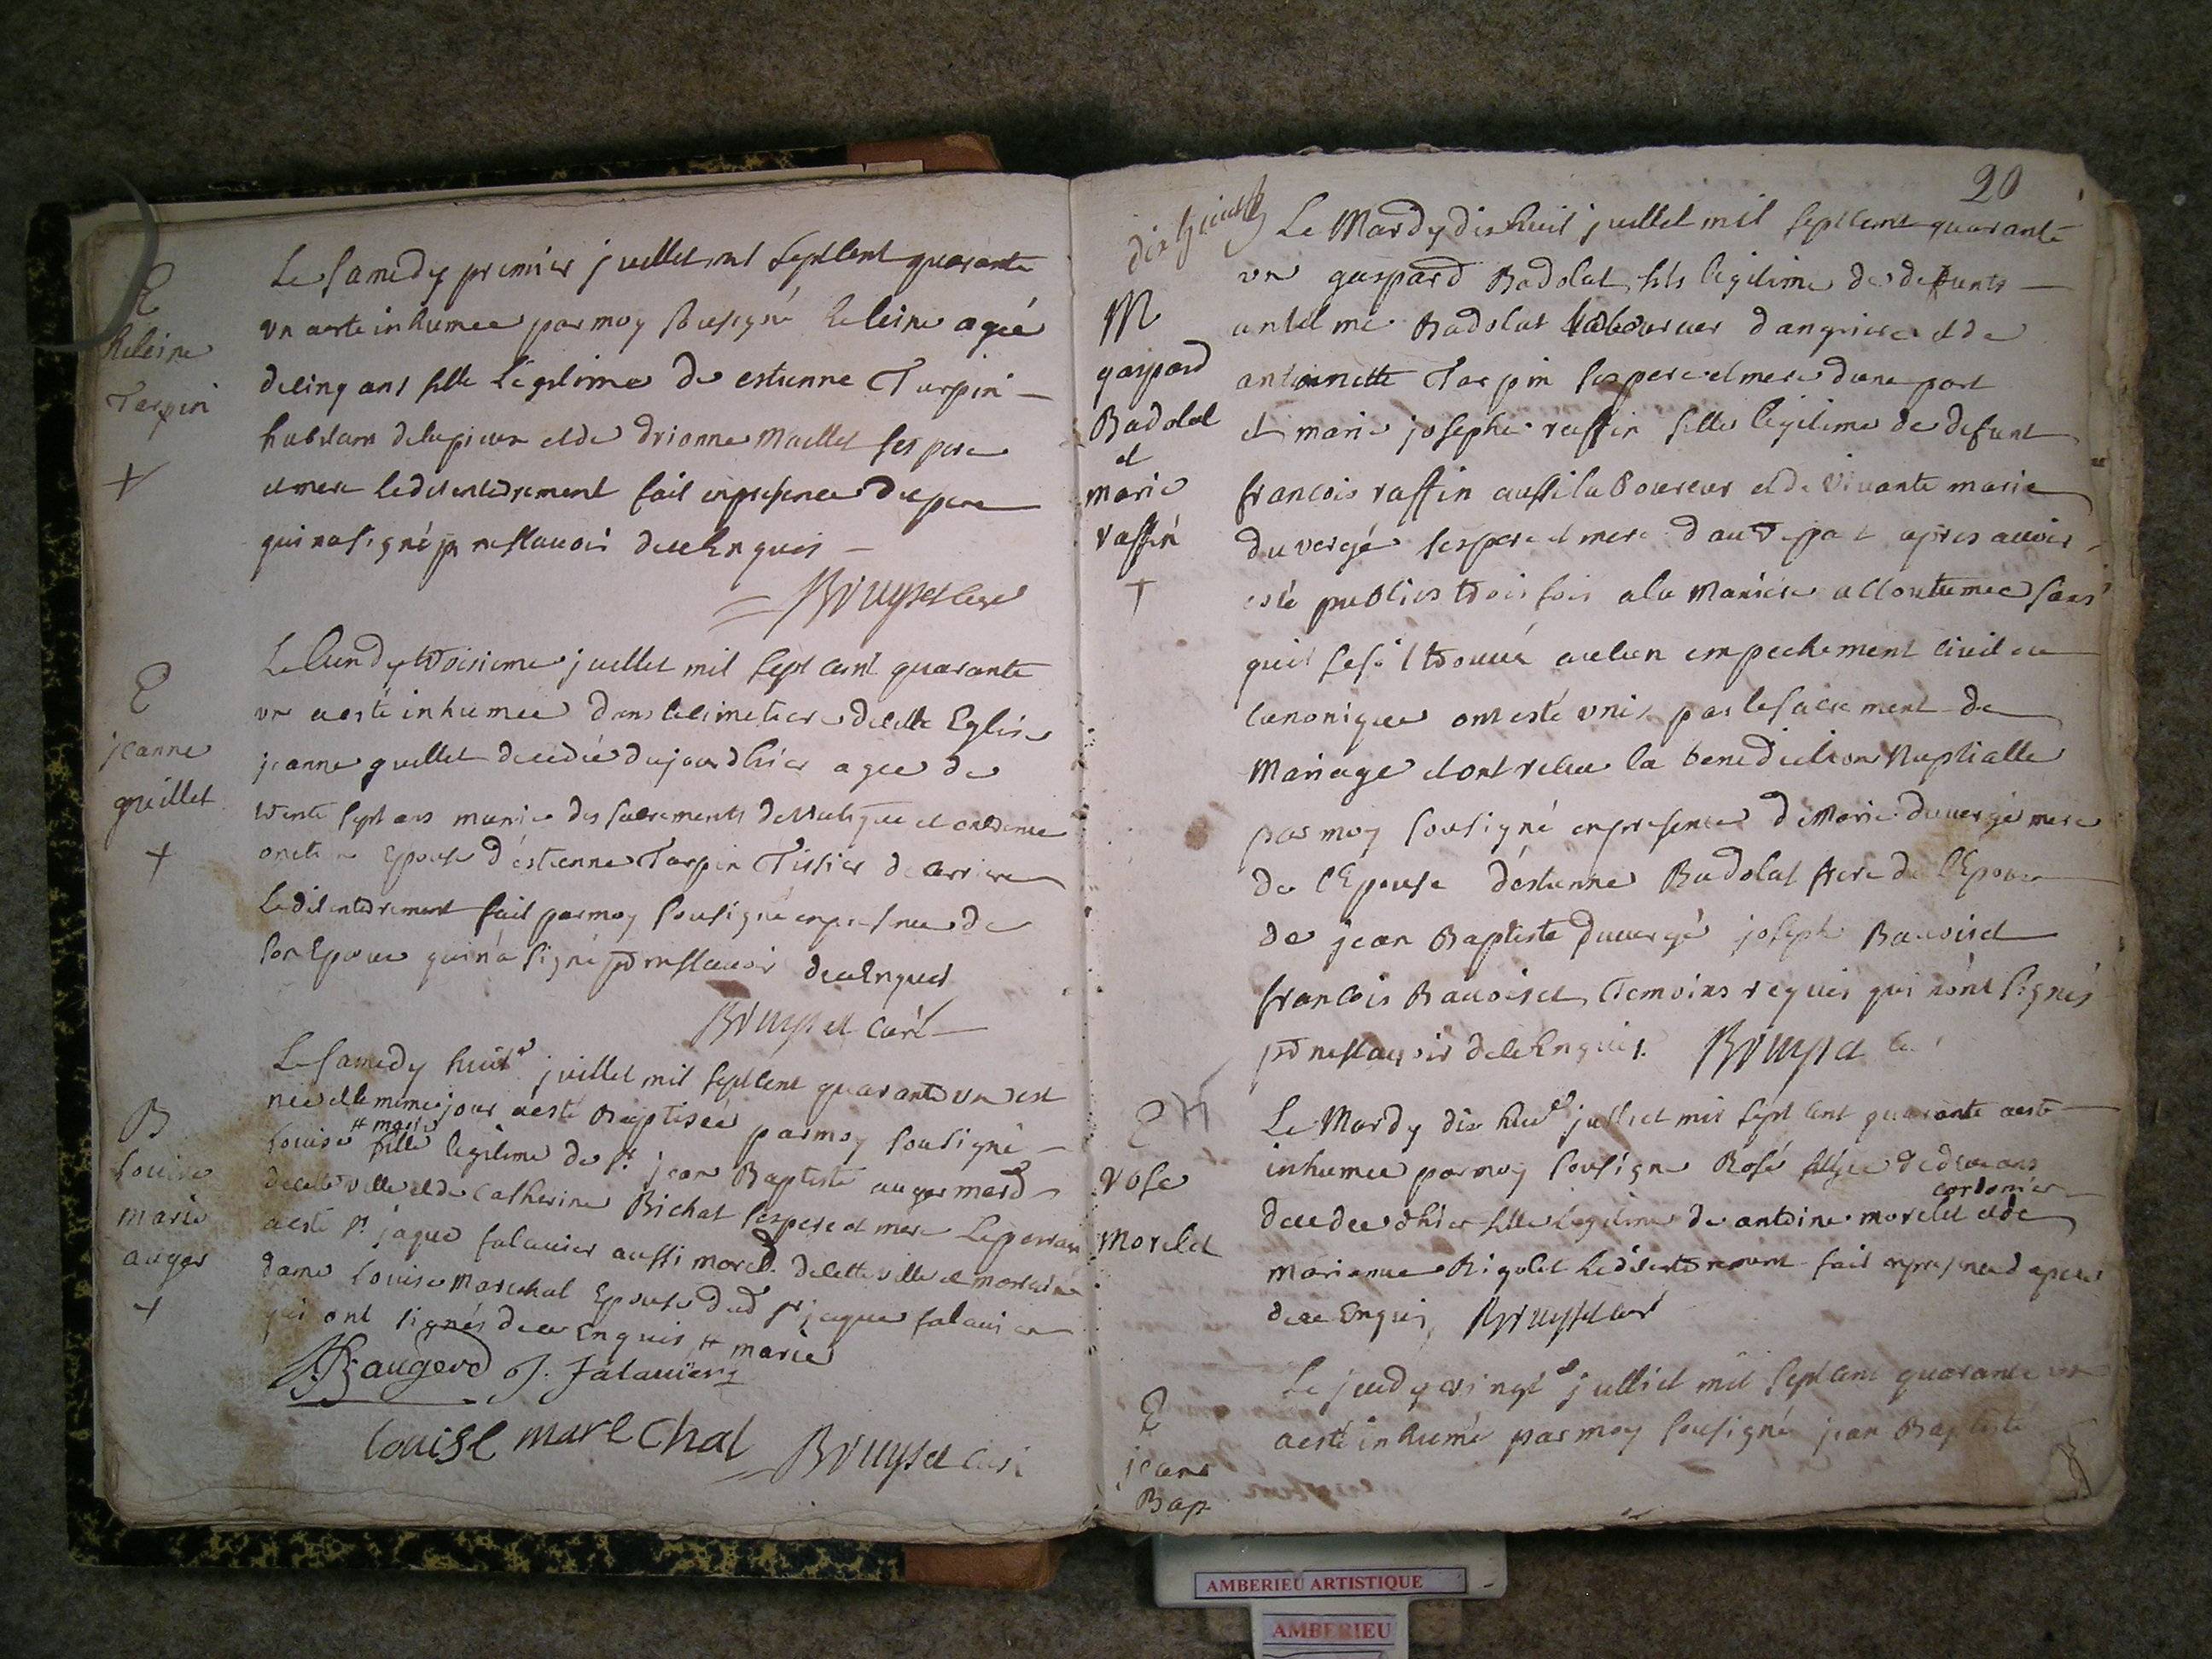 E
heleine
Tarpin
+
Le samedy premier juillet mil septcent quarante
un a esté inhumee par moy sousigné heleine agée
de cinq ans fille legitime de estienne Tarpin
habitant et de Maillet ses pere
et mere ledit enterement fait en presence du pere
qui na signé pr ne scavoir de ce Enquis
Bruyset curé
E
jeanne
guillet
+
Le lundy troisieme juillet mil sept cent quarante
un a esté inhumee dans le cimetiere de cette Eglise
jeanne guillet decedée du jour dhier agee de
trente sept ans munie des sacrements de viatique et extreme
onction Epouse d'estienne Tarpin Tissier
Ledit enterement fait par moy sousigné en presence de
son Epoux qui n'a signé pr ne scavoir de ce Enquis
Bruyset curé
B
Louise
marie
auger
+
Le samedy huit e juillet mil septcent quarante un est
née et le meme jour a esté Baptisée par moy sousigné
# marie
Louise fille legitime de sr jean Baptiste auger mard
de cette ville et de Catherine Bichat ses pere et mere Le parrain
a esté sr jaque falavier aussi marcd de cette ville et marraine
dame Louise Marechal Epouse dud sr jaque falavier
qui ont signés de ce Enquis # marie
JB augerd J. falavier
Louise marechal Bruyset curé
20
dix huict
M
gaspard
Badolat
et
marie
raffin
+
Le Mardy dix huit juillet mil septcent quarante
un gaspard Badolat fils legitime de defunts
antelme Badolat laboureur et de
antoinette Tarpin ses pere et mere dune part
et marie josephe raffin fille legitime de defunt
francois raffin aussi laboureur et de vivante marie
duvergé ses pere et mere d'autre part apres avoir
esté publies trois fois a la maniere accoutumee sans
quil se soit trouvé aucun empechement civil ou
canonique ont esté unis par le sacrement de
Mariage et ont recu la benediction Nuptialle
par moy sousigné en presence de Marie duvergé mere
de l'Epouse d'estienne Badolat frere de l'Epoux
de jean Baptiste duvergé joseph Bavoiset
francois Bavoiset temoins requis qui n'ont signés
pr ne scavoir de ce Enquis. Bruyset
E
rose
Morelet
Le Mardy dix huit juilliet mil sept cent quarante a esté
inhumee par moy sousigné Rose agee de deux ans
cordonier
decedee dhier fille legitime de antoine morelet et de
marianne Rigolet ledit enterement fait en presence du pere
de ce Enquis Bruyset curé
E
jean
Bap
Le jeudy vingt e julliet mil septcent quarante un
a esté inhumé par moy sousigné jean Baptiste
AMBERIEU ARTISTIQUE
AMBERIEU